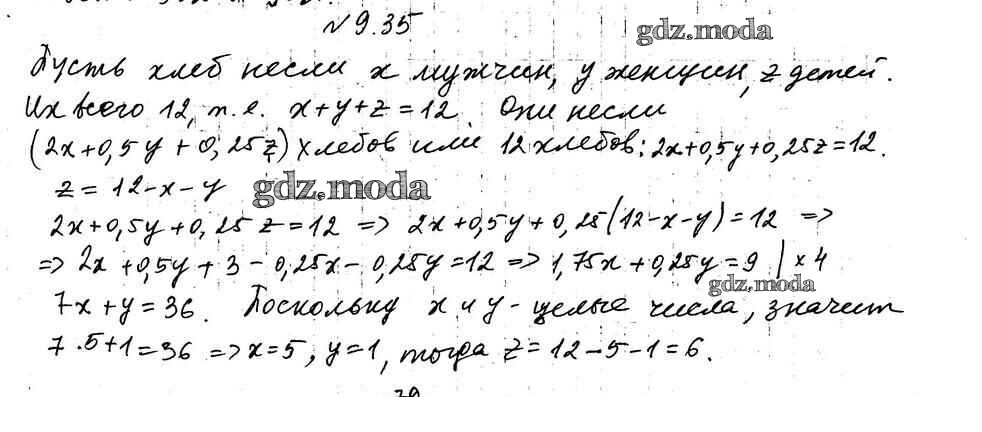 №9.35
gdz.moda
Пусть хлеб несли x мужчин, y женщин, z детей.
Их всего 12, т.е. x+y+z=12. Они несли
(2x+0,5y+0,25z) хлебов или 12 хлебов: 2x+0,5y+0,25z=12.
z=12-x-y gdz.moda
2x+0,5y+0,25z=12 => 2x+0,5y+0,25(12-x-y)=12 =>
=> 2x+0,5y+3-0,25x-0,25y=12 => 1,75x+0,25y=9 |×4
gdz.moda
7x+y=36. Поскольку x и y - целые числа, значит
7·5+1=36 => x=5, y=1, тогда z=12-5-1=6.